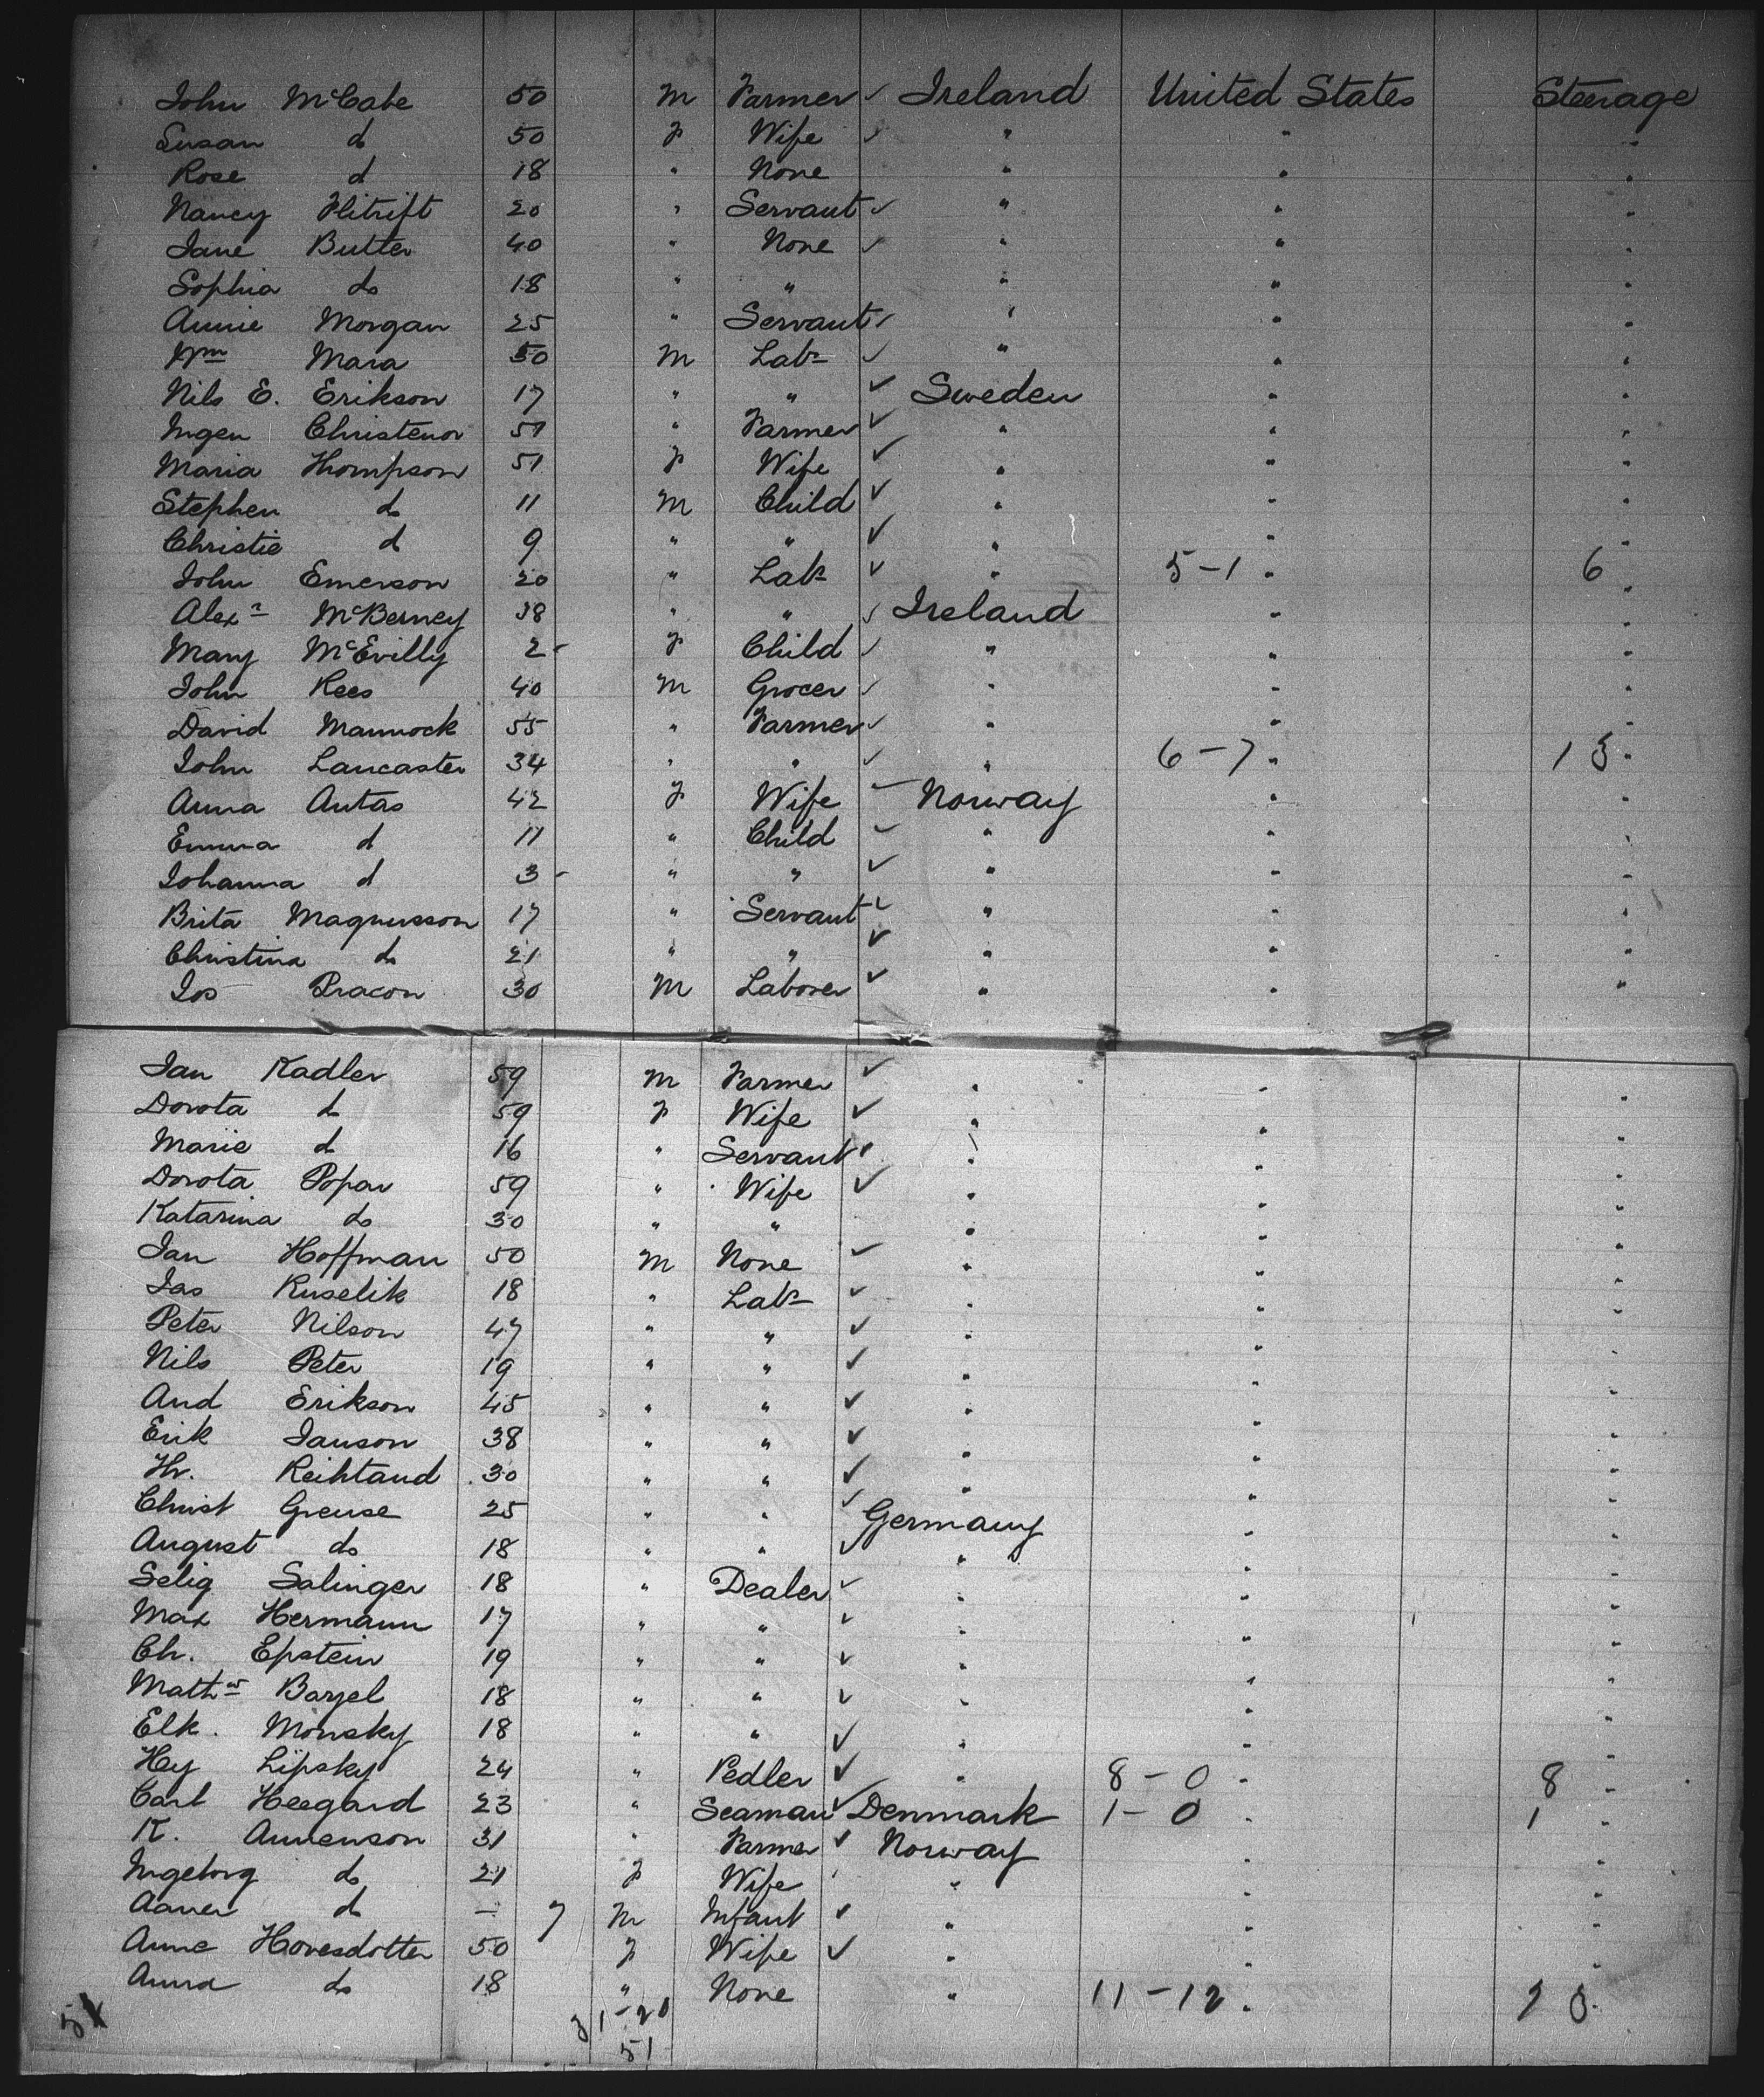 John McCabe 50 M Farmer ✓ Ireland United States Steerage
Susan do 50 F Wife ✓ " " "
Rose do 18 " None " " "
Nancy Flitrift 20 " Servant ✓ " " "
Jane Butter 40 " None ✓ " " "
Sophia do 18 " " " " "
Annie Morgan 25 " Servant ✓ " " "
Wm Mara 50 M Labr ✓ " " "
Nils E. Erikson 17 " " ✓ Sweden " "
Ingen Christenor 51 " Farmer ✓ " " "
Maria Thompson 51 F Wife ✓ " " "
Stephen do 11 M Child ✓ " " "
Christie do 9 " " ✓ " " "
John Emerson 20 " Labr ✓ " 5-1 " 6 "
Alexr McBerney 38 " " ✓ Ireland " "
Mary McEvilly 2 - F Child ✓ " " "
John Rees 40 M Grocer ✓ " " "
David Mannock 55 " Farmer ✓ " " "
John Lancaster 34 " " ✓ " 6-7 " 13 "
Anna Antas 42 F Wife ✓ Norway " "
Emma do 11 " Child ✓ " " "
Johanna do 3 - " " ✓ " " "
Brita Magnusson 17 " Servant ✓ " " "
Christina do 21 " " ✓ " " "
Jos Pracon 30 M Laborer ✓ " " "
Jan Kadler 59 M Farmer ✓ " " "
Dorota do 59 F Wife ✓ " " "
Marie do 16 " Servant ✓ " " "
Dorota Popav 59 " Wife ✓ " " "
Katarina do 30 " " " " "
Jan Hoffman 50 M None ✓ " " "
Jas Ruselik 18 " Labr ✓ " " "
Peter Nilson 47 " " ✓ " " "
Nils Peter 19 " " ✓ " " "
And Erikson 45 " " ✓ " " "
Erik Janson 38 " " ✓ " " "
Hr. Reihtand 30 " " ✓ " " "
Christ Greuse 25 " " ✓ Germany " "
August do 18 " " ✓ " " "
Selig Salinger 18 " Dealer ✓ " " "
Max Hermann 17 " " ✓ " " "
Ch. Epstein 19 " " ✓ " " "
Mathas Barzel 18 " " ✓ " " "
Elk. Monsky 18 " " ✓ " " "
Hy Lipsky 24 " Pedler ✓ " 8-0 " 8 "
Carl Heegard 23 " Seaman ✓ Denmark 1-0 " 1 "
K. Annenson 31 " Farmer ✓ Norway " "
Ingeborg do 21 F Wife ✓ " " "
Aaner do - 7 M Infant ✓ " " "
Anne Hovesdotter 50 F Wife ✓ " " "
Anna do 18 " None " 11-12 " 23 "
51 31-20
51